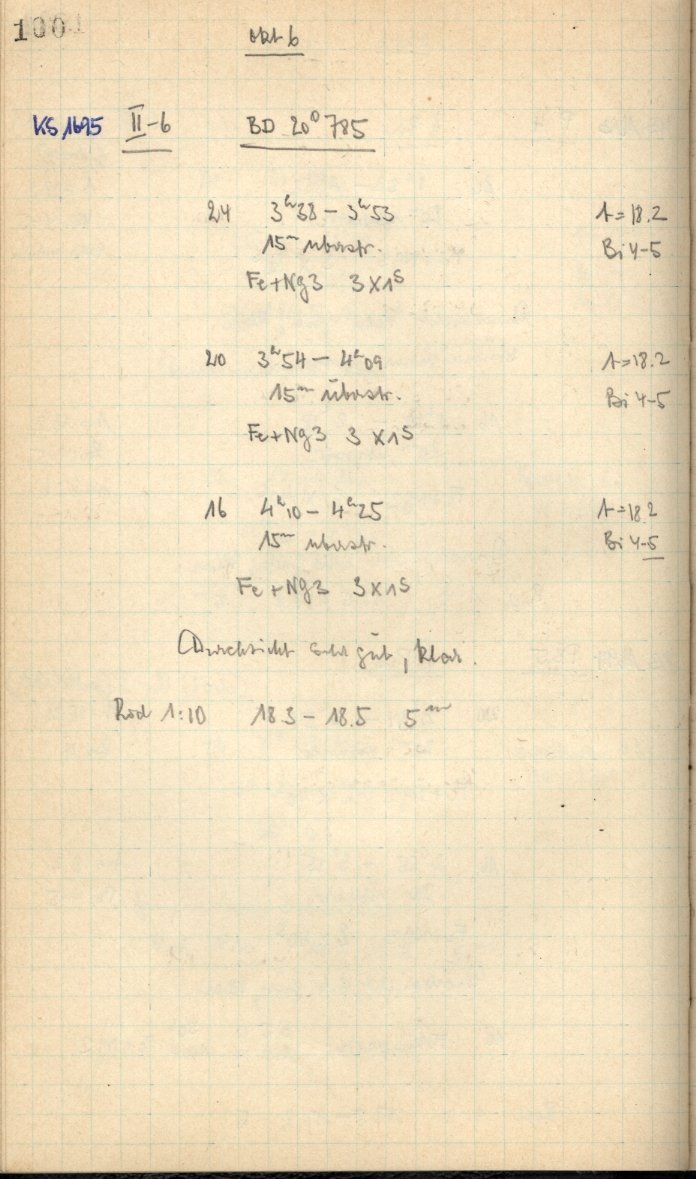 1001
Okt 6
KS 1695 II-6 BD 20° 785
24 3ʰ38 – 3ʰ53 A=18.2
15ᵐ überstr. Bi 4-5
Fe+Ng3 3×1ˢ
20 3ʰ54 – 4ʰ09 A=18.2
15ᵐ überstr. Bi 4-5
Fe+Ng3 3×1ˢ
16 4ʰ10 – 4ʰ25 A=18.2
15ᵐ überstr. Bi 4-5
Fe+Ng3 3×1ˢ
Durchsicht sehr gut, klar.
Rod 1:10 18.3 – 18.5 5ᵐ